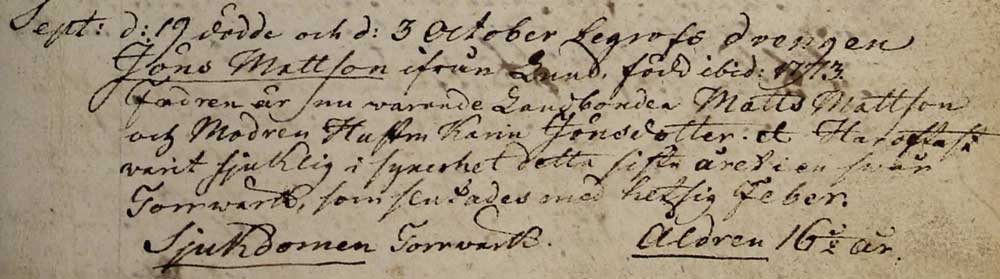 Sept: d: 19 dödde och d: 3 October begrofs drengen
Jöns Mattson ifrån Lund, född ibid: 1773.
Fadren är nu warande Landbonden Matts Mattson
och Modren Hustru Jönsdotter. Har oftast
warit sjuklig i synnerhet detta sista året i en swår
Torrwärk, som slutades med hetsig Feber.
Sjukdomen Torrwärk. Åldren 16 1/2 år.